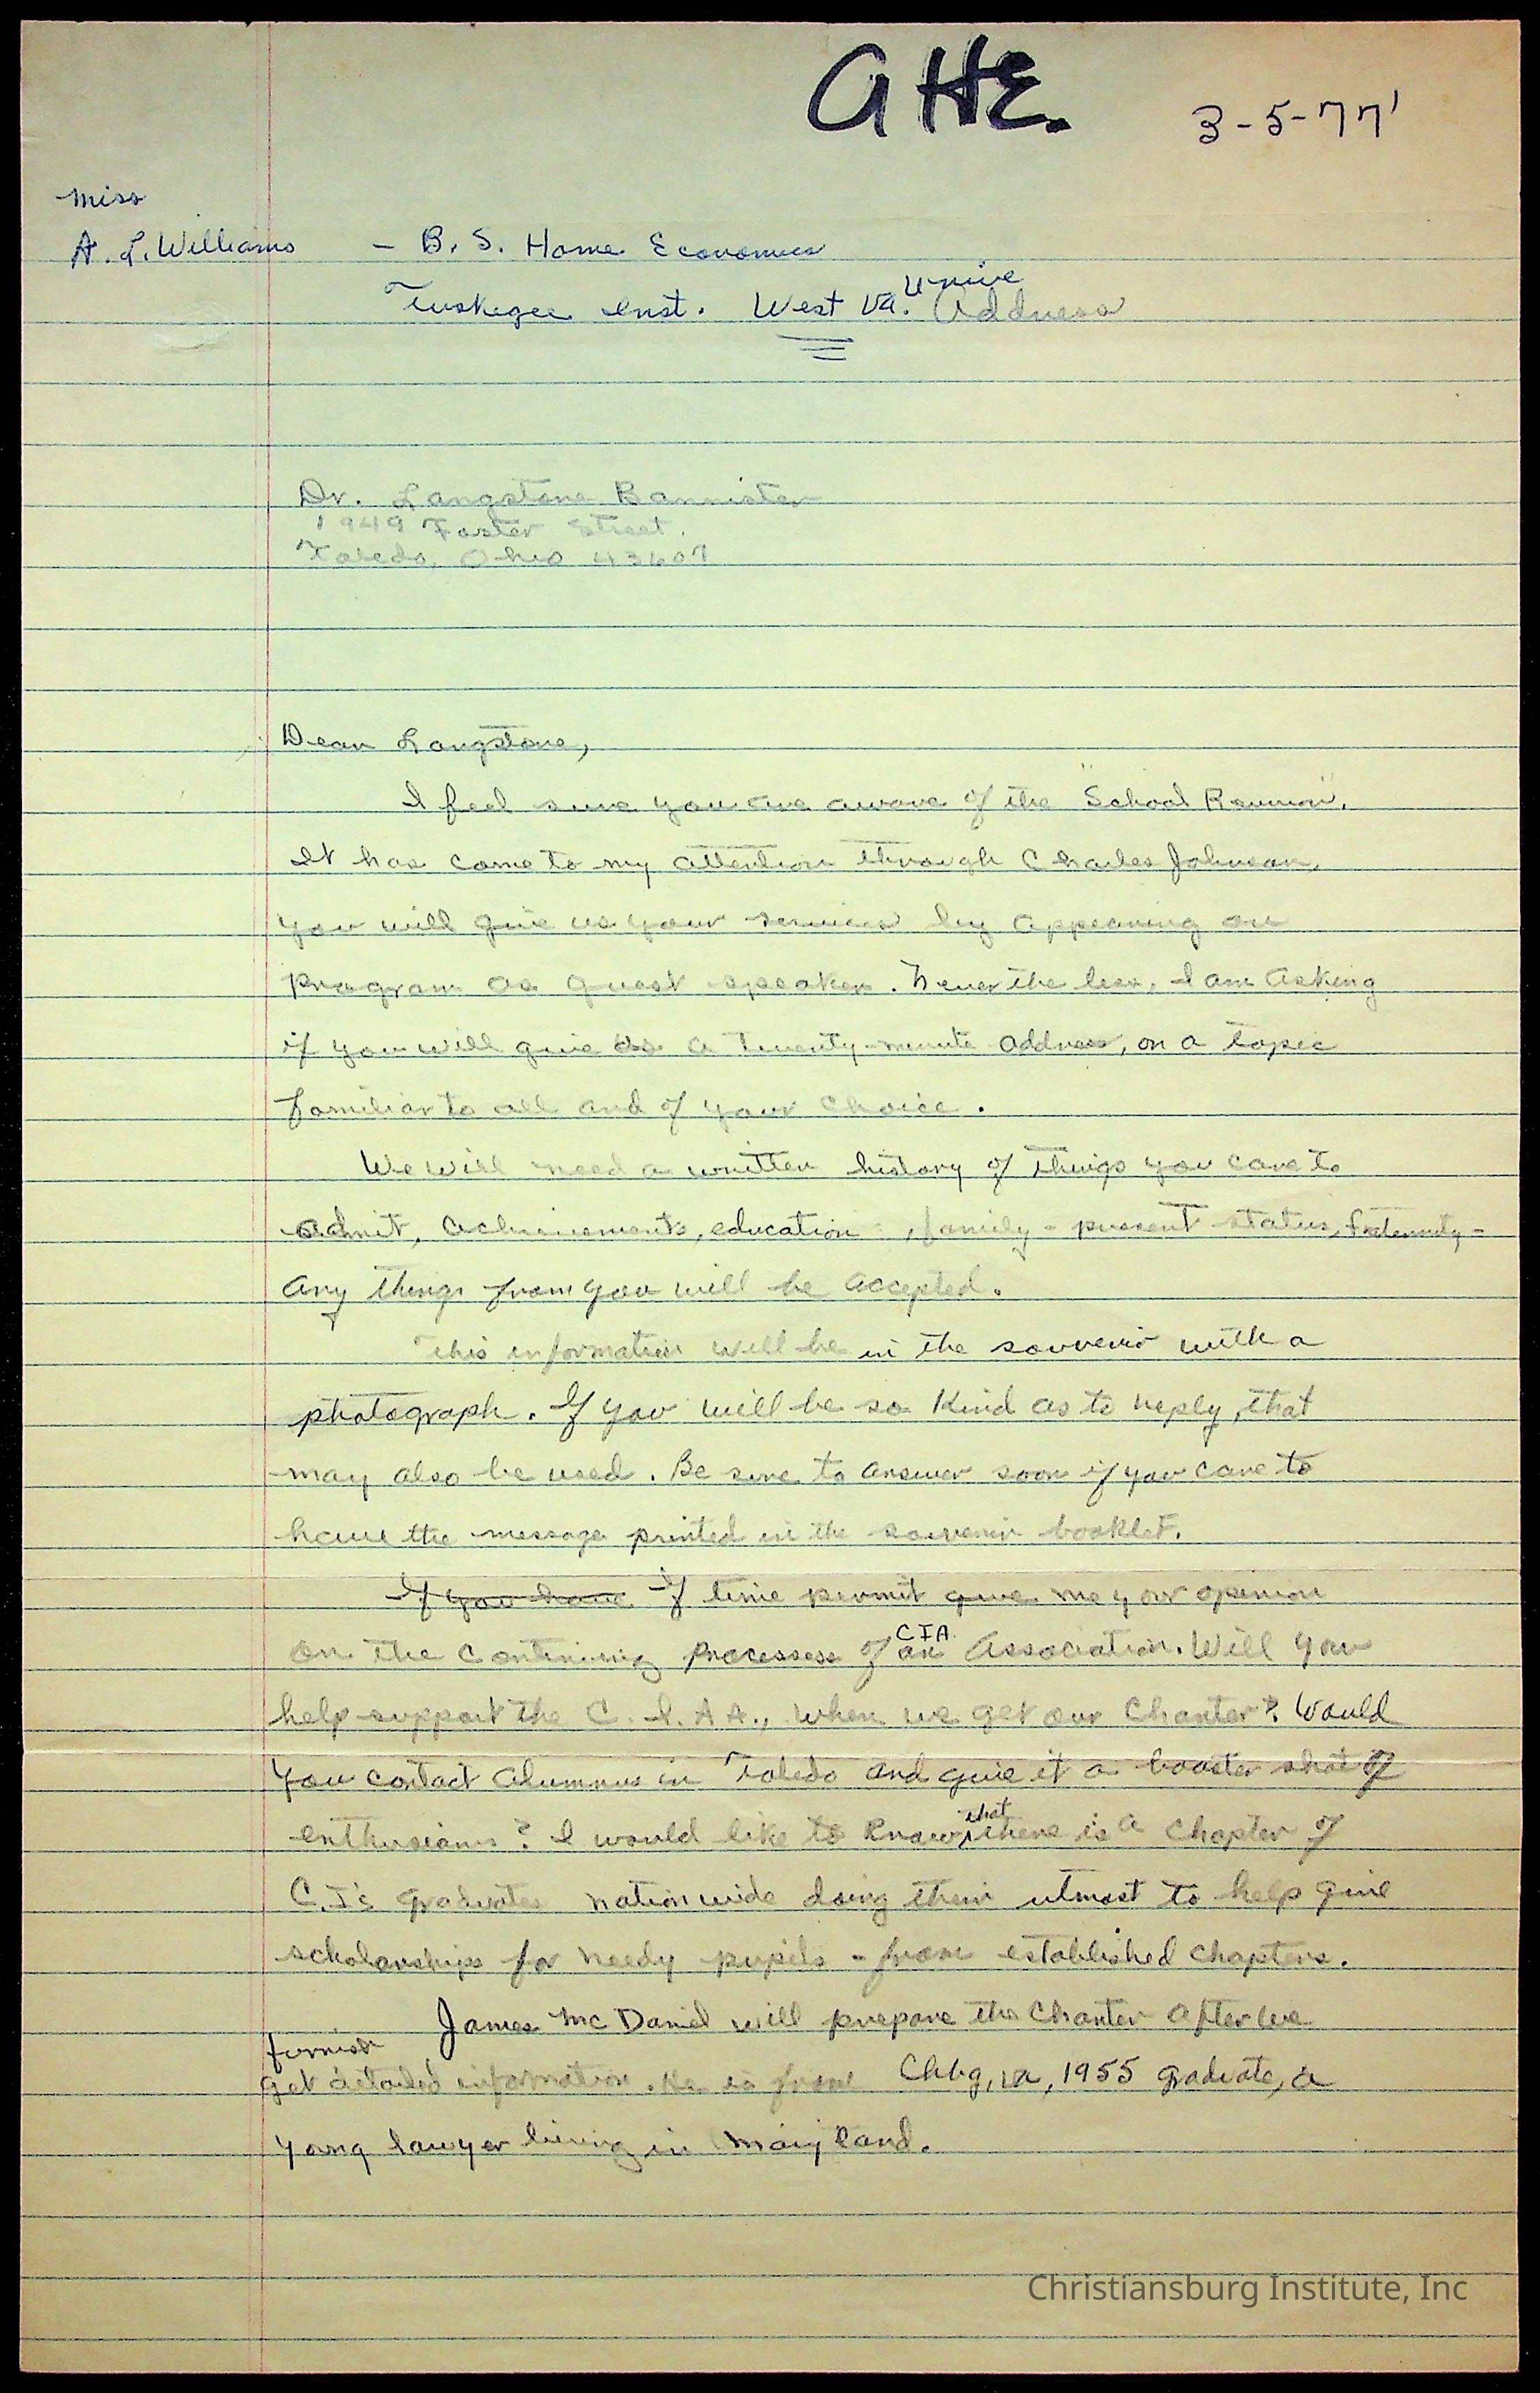 AHE.
3-5-77'
Miss
A. L. Williams - B. S. Home Economics
Tuskegee Inst. West Va. Unive Address
Dr. Langstone Bannister
1949 Foster Street.
Toledo, Ohio 43607
Dear Langstone,
I feel sure you are aware of the "School Reunion".
It has come to my attention through Charles Johnson,
you will give us your services by appearing on
program as guest speaker. Never the less, I am asking
if you will give us a twenty-minute address, on a topic
familiar to all and of your choice.
We will need a written history of things you care to
admit, achievements, education, family - present status, fraternity -
Any things from you will be accepted.
This information will be in the souvenir with a
photograph. If you will be so kind as to reply, that
may also be used. Be sure to answer soon if you care to
have the message printed in the souvenir booklet.
If you have If time permit give me your opinion
on the continuing processes of CIA an Association. Will you
help support the C. I. A A., when we get our Charter? Would
you contact Alumnus in Toledo and give it a booster shot of
enthusiams? I would like to know that there is a Chapter of
C.I's graduates nationwide doing their utmost to help give
scholarships for needy pupils - from established chapters.
James McDaniel will prepare the Charter after we
furnish
get detailed information. He is from Chbg, Va, 1955 graduate, a
yong lawyer living in Maryland.
Christiansburg Institute, Inc